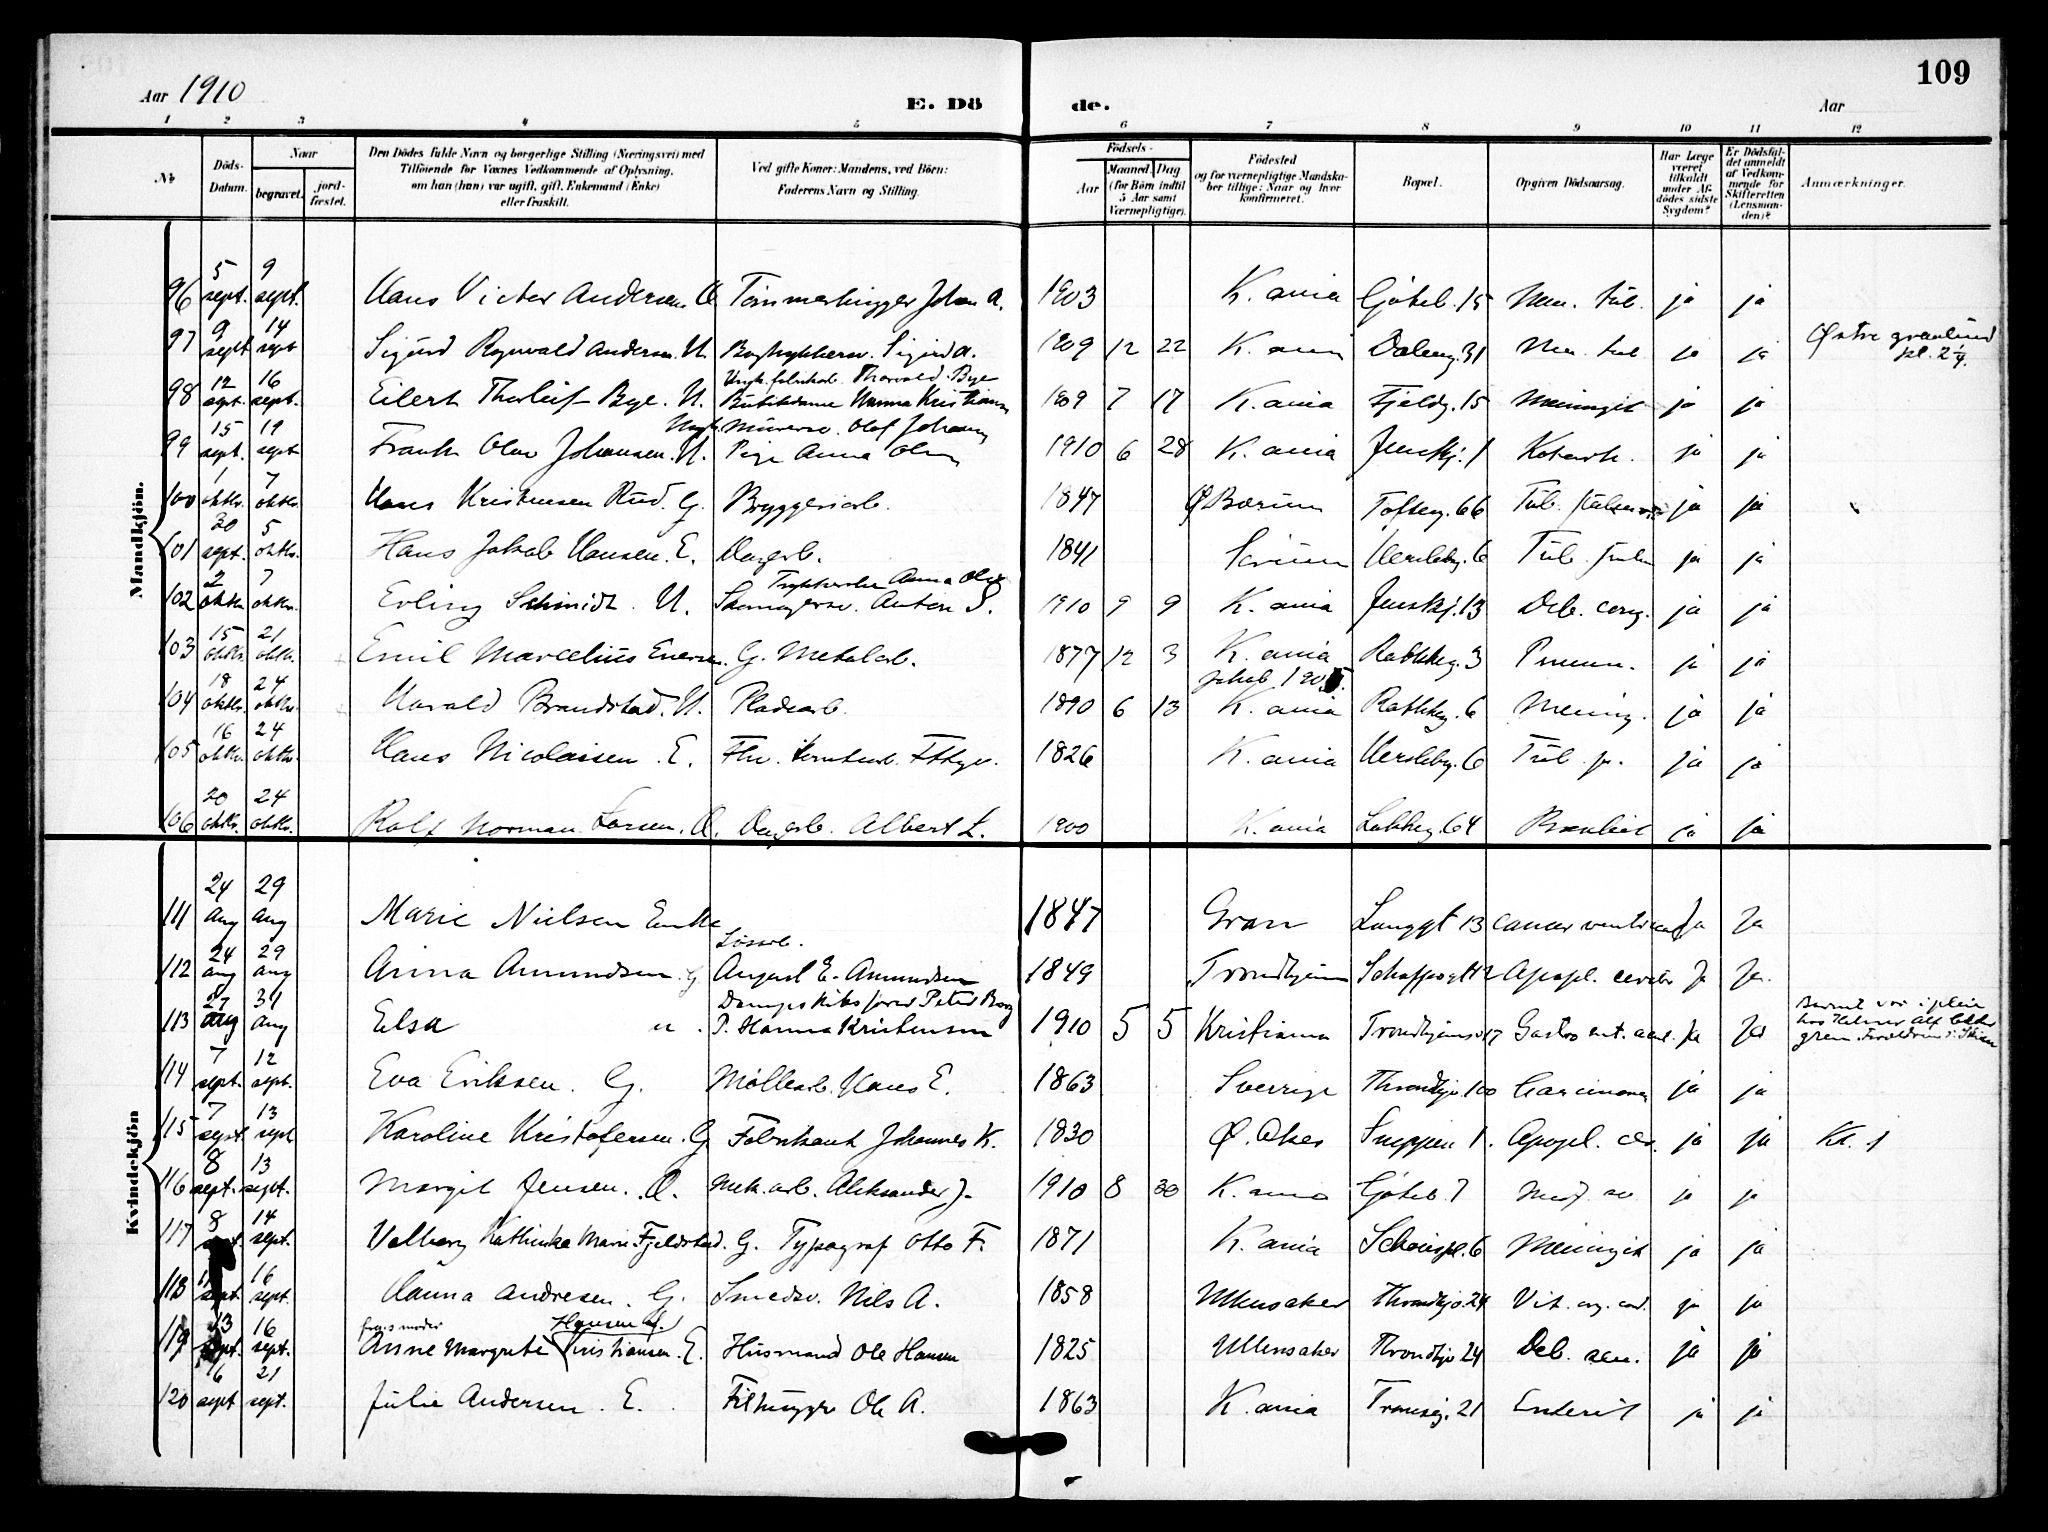 109
Aar 1910
E. Dö de.
Aar
1 2 3 4 5 6 7 8 9 10 11 12
№
Döds-Datum.
Naar
begravet.
jord-fæstet.
Den Dödes fulde Navn og borgerlige Stilling (Næringsvei) med
Tilföiende for Voxnes Vedkommende af Oplysning,
om han (hun) var ugift, gift, Enkemand (Enke)
eller fraskilt.
Ved gifte Koner: Mandens, ved Börn:
Faderens Navn og Stilling.
Födsels-
Aar
Maaned. Dag
(for Börn indtil
5 Aar samt
Værnepligtige).
Födested
og for værnepligtige Mandska-
ber tillige: Naar og hvor
konfirmeret.
Bopæl.
Opgiven Dödsaarsag.
Har Læge
været
tilkaldt
under Af-
dödes sidste
Sygdom?
Er Dödsfal-
det anmeldt
af Vedkom-
mende for
Skifteretten
(Lensman-
den)?
Anmærkninger.
Mandkjön.
96 5 sept. 9 sept. Hans Victor Andersen. Tømmerhugger Johan A. 1903 K.ania Gøteb. 15 Men. tub. ja ja
97 9 sept 14 sept Sigurd Andersen. U. Sigurd A. 1909 12 22 K.ania Daleng. 31 Men. tub. ja ja Østre gravlund kl. 2¼.
Thorvald Bye
98 12 sept. 16 sept. Eilert Thorleif Bye. U. Hanna Kristiansen 1909 7 17 K.ania Fjeldg. 15 Meningit ja ja
Ungk. Murersv. Olaf Johansen
99 15 sept. 19 sept Frank Olav Johansen. U. Pige Anna Olsen 1910 6 28 K.ania Jenskj. 1 Katarrh. ja ja
100 1 oktbr. 7 oktbr. Hans Kristensen Rud. G. Bryggeriarb. 1847 Ø Bærum Tofteg. 66 Tub. ja ja
101 30 sept. 5 oktbr. Hans Jakob Hansen. E. Dagarb. 1841 Sørum Herslebg. 6 Tub. pulm ja ja
Anna Olsen
102 2 oktbr 7 oktbr. Erling Schmidt. U. Skomagersv. Anton S. 1910 9 9 K.ania Jenskj. 13 Deb. cong. ja ja
103 15 oktbr. 21 oktbr. Emil Marcelius Evensen. G. Metalarb. 1877 12 3 K.ania Rathkeg. 3 Pneum. ja ja
Jakob 1905.
104 18 oktbr. 24 oktbr. Harald Brandstad. U. Pladearb. 1890 6 13 K.ania Rathkeg. 6 Mening. ja ja
105 16 oktbr. 24 oktbr. Hans Nicolaisen. E. Fhv. Fttgv. 1826 K.ania Hersleby. 6 Tub. p. ja ja
106 20 oktbr. 24 oktbr. Rolf Norman Larsen. Dagarb. Albert L. 1900 K.ania Lakkeg. 64 ja ja
Kvindekjön
111 24 Aug 29 Aug Marie Nielsen Enke 1847 Gran Langgt 13 cancer ventriculi Ja Ja
Løssarb.
112 24 aug 29 aug Anna Amundsen. G August E. Amundsen 1849 Trondhjem Apopl. cerebr Ja.
Dampskibsfører Peter Borg
113 27 aug 31 aug Elsa u. P. Hanna Kristensen 1910 5 5 Kristiania Trondhjemsv 17 Gastro ent. acut. Ja Ja Barnet var i pleie hos
114 7 sept. 12 sept. Eva Eriksen. G. Møllearb. Hans E. 1863 Sverrige Throndhjv. 100 Carcinoma ja ja
115 7 sept. 13 sept Karoline Kristofersen. G Fabrikant Johannes K. 1830 Ø. Aker 1. Apopl. cer. ja ja Kl. 1
116 8 sept. 13 sept. Margit Jensen. Mek. arb. Aleksander J. 1910 8 30 K.ania Gøteb. 7 ja ja
117 8 sept. 14 sept. Valborg Kathinka Marie Fjeldstad. G. Typograf Otto F. 1871 K.ania Schouspl. 6 Meningit ja ja
118 11 sept 16 sept. Hanna Andresen. G. Smedsv. Nils A. 1858 Ullensaker Throndhjv. 24 Vit. org. cord. ja ja
Hansen
119 13 sept. 16 sept. Anne Margrete Kristiansen. E. Husmand Ole Hansen 1825 Ullensaker Throndhjv 24 Deb. sen. ja ja
120 16 sept 21 sept. Julie Andersen. E. Filhugger Ole A. 1863 K.ania Tromsøg. 21 Enterit ja ja